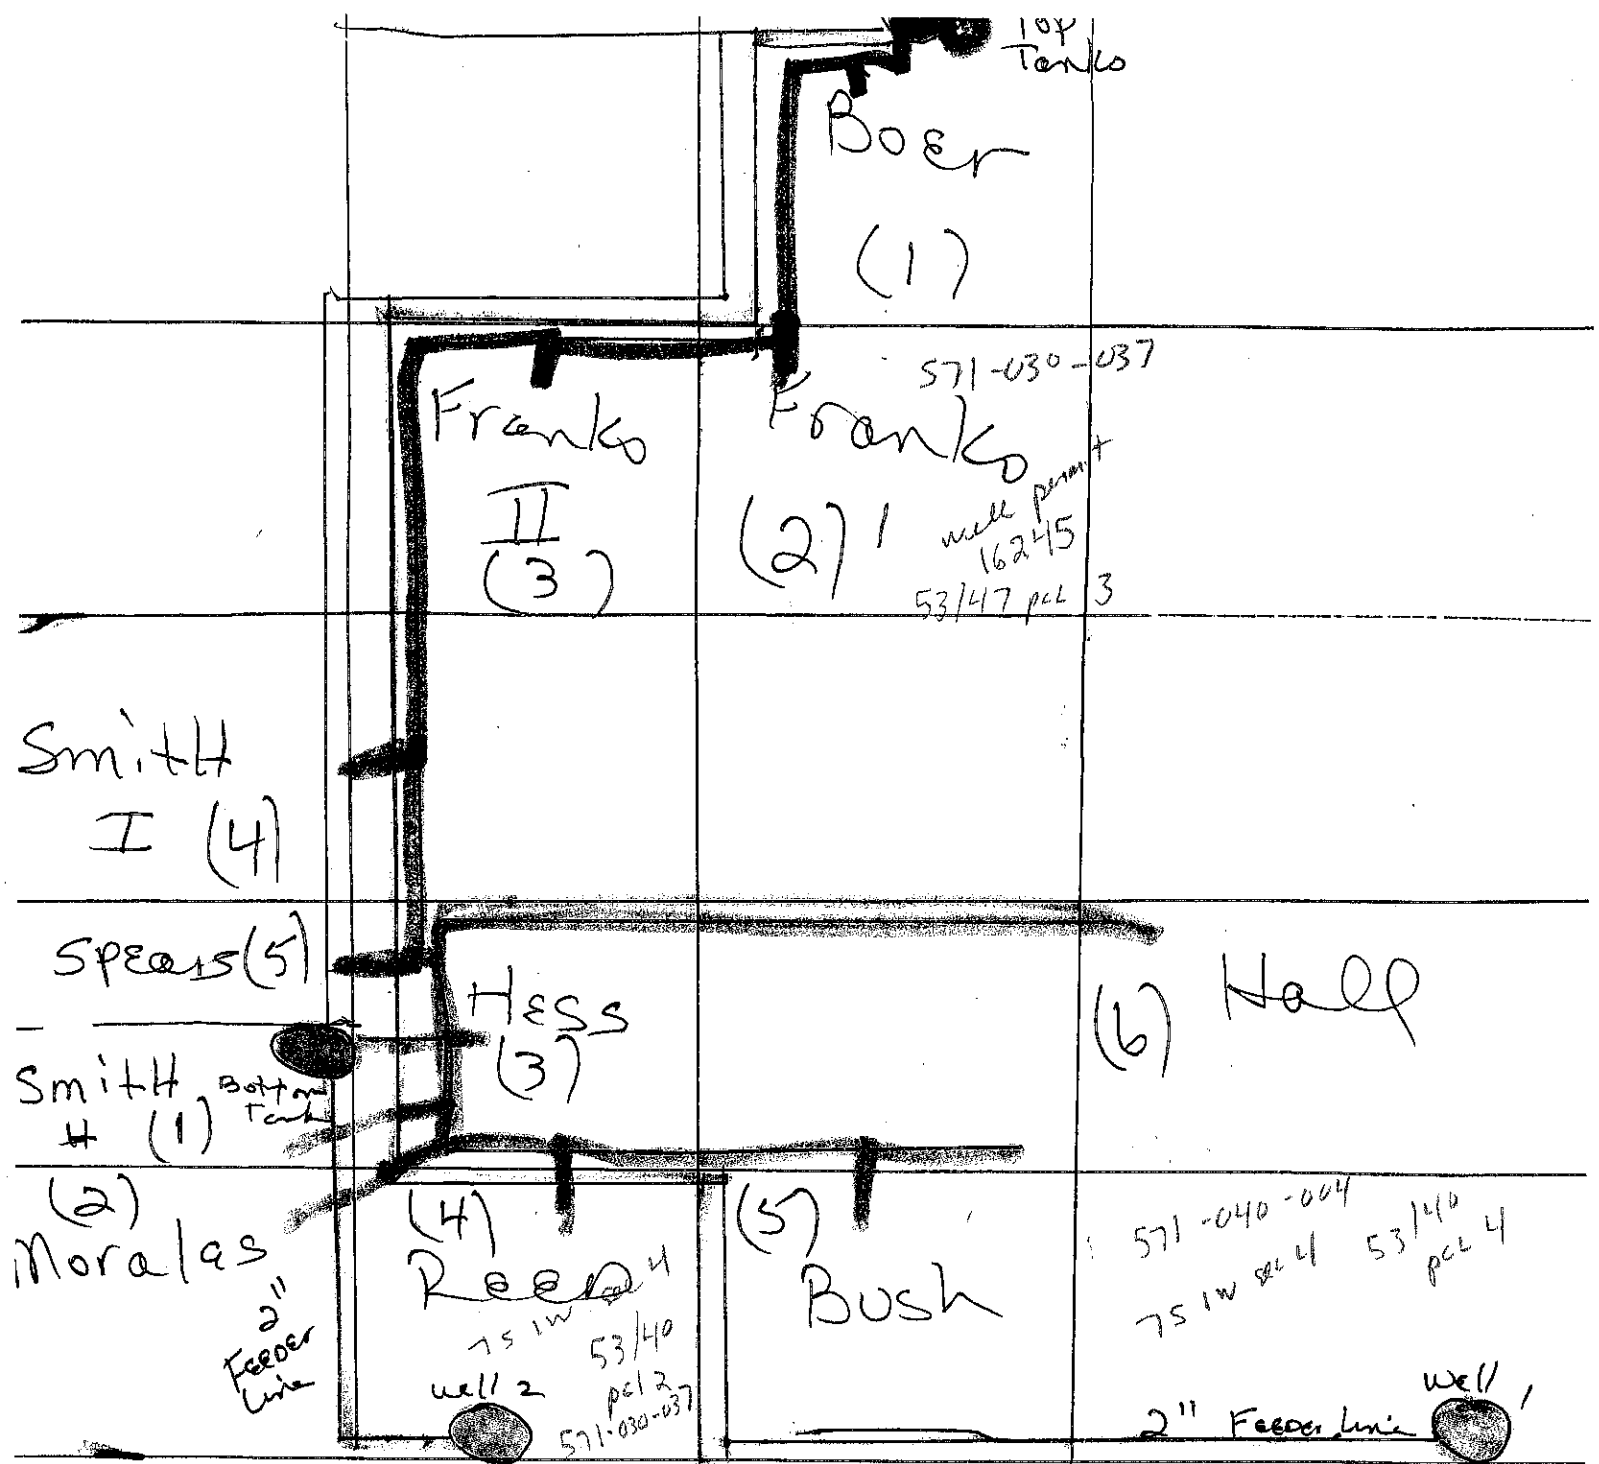 Top
Tanks
Boer
(1)
571-030-037
Franko
II
(3)
Franko
(2) 1
well permit
16245
53/47 pcl 3
Smith
I (4)
Spears (5)
Hess
(3)
(6) Hall
Smith
II (1)
Bottom
Tank
(2)
Moralas
2"
Feeder
Line
(4)
Reed
7S 1W sec 4
53/40
pcl 2
571-030-037
well 2
(5)
Bush
571-040-004
7S 1W sec 4
53/40
pcl 4
2" Feeder Line
well 1